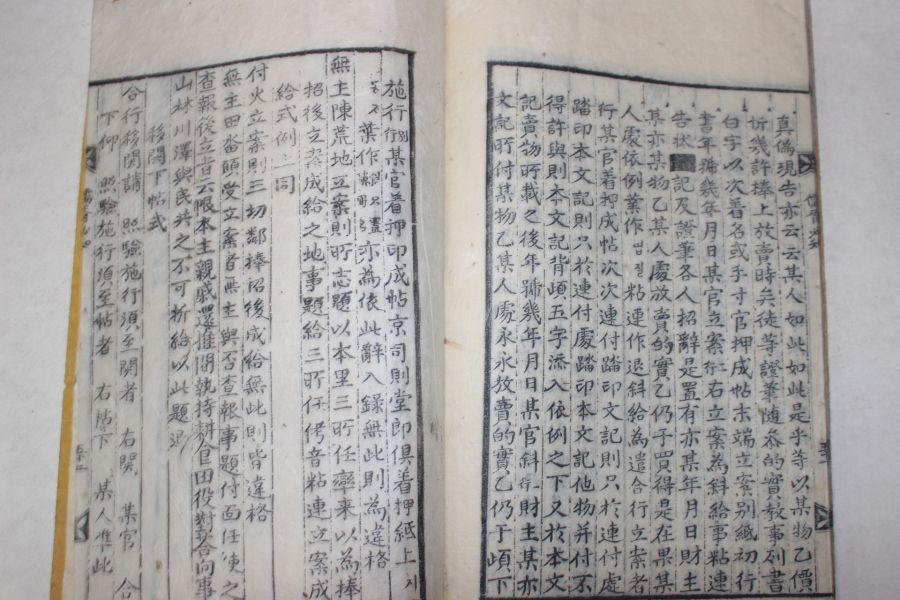 真偽現告亦云云某人如此如此是乎等以某物乙價
折幾許捧上放賣時矣徒等證筆隨參的實敎事列書
白字以次着名或手寸官押成帖末端立案別紙初行
書年號幾年月日某官立案行右立案爲斜給事粘連
告狀 記及證筆各人招辭是置有亦某年月日財主
某亦某物乙某人處放賣的實乙仍于買得是在果某
人處依例葉作 粘連作退斜給爲遣合行立案者
行某官着押成帖次次連付踏印文記則只於連付處
踏印本文記則只於連付處踏印本文記他物幷付不
得許與則本文記背頉五字添入依例之下又於本文
記賣物旀載之後年號幾年月日某官斜行財主某亦
文記旀付某物乙某人處永永放賣的實乙仍于頉下
施行行某官着押印成帖京司則堂郎俱着押紙上
葉作 亦爲依此辭入錄無此則爲違格
無主陳荒地立案則旀志題以本里三所任率來以爲捧
招後立案成給之地事題給三所任侤音粘連立案成
給式例上同
付火立案則三切鄰捧招後成給無此則皆違格
無主田畓願受立案者無主與否查報事題付面任使之
查報後立旨云限本主親戚還推間執持耕食田役對答向事
山林川澤與民共之不可折給以此題退
移關下帖式
合行移關請 照驗施行須至關者 右關 某官 合
下仰 照驗施行須至帖者 右帖下 某人准此